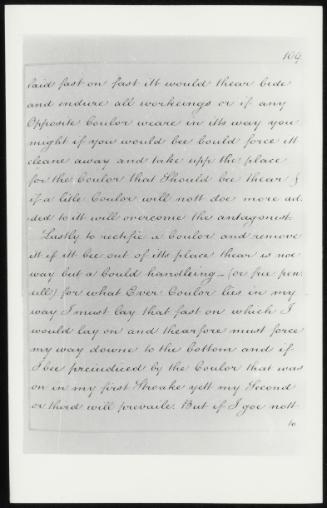 109.
laid fast on fast itt would thear bide
and endure all workeings or if any
Opposite Coulor weare in itts way you
might if you would bee bould force itt
cleane away and take uppe the place
for the Coulor that Should bee thear &
if a litle Coulor will nott doe more ad.
ded to itt will overcome the antagonist.
Lastly to rectifie a Coulor and remove
itt if itt bee out of itts place thear is noe
way but a bould handleing_ (or free pen
sill) for what Ever Coulor lies in my
way I must lay that fast on which I
would lay on and thearfore must force
my way downe to the bottom and if
I bee preiudiced by the Coulor that was
on in my first Stroake yett my Second
or third will prevaile. But if I goe nott
to